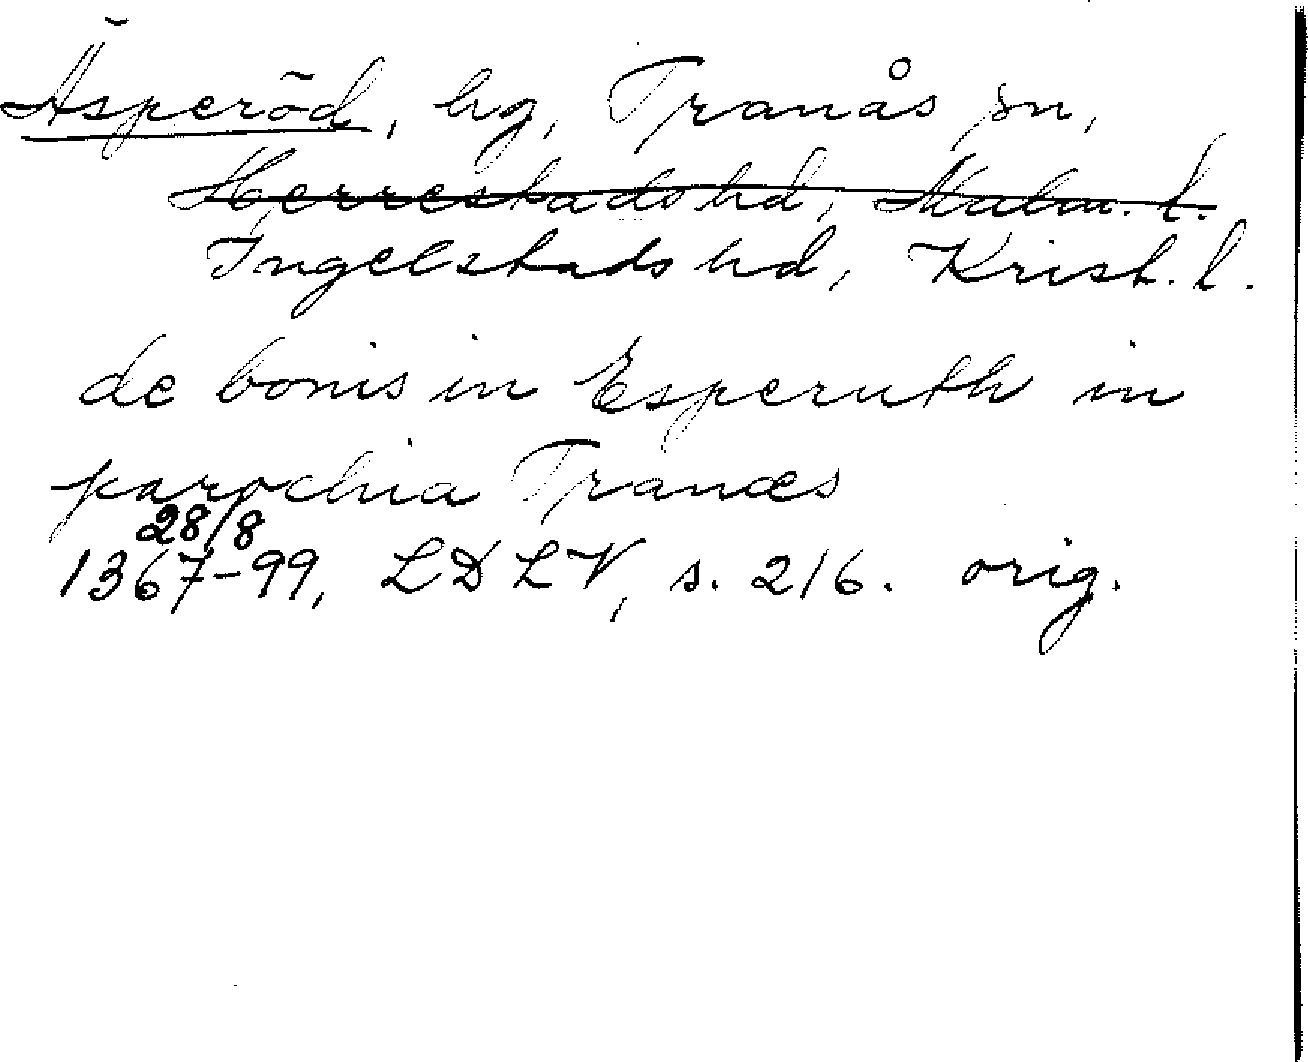 Äsperöd, hg, Tranås sn,
Herrestads hd, Malm. l.
Ingelstads hd, Krist. l.
de bonis in Esperuth in
parochia Tranæs
28/8
1367-99, LDLV, s. 216. orig.